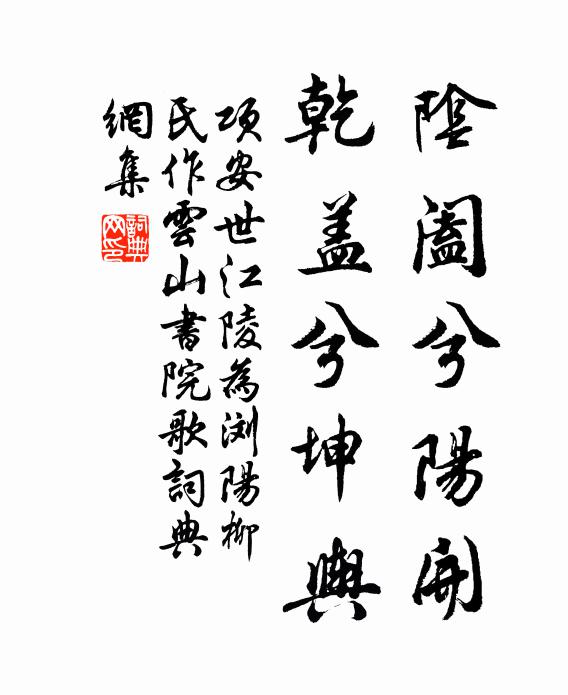 陰闔兮陽開
乾蓋兮坤輿
項安世江陵為瀏陽柳
氏作雲山書院歌詞典
網集
詞典網印